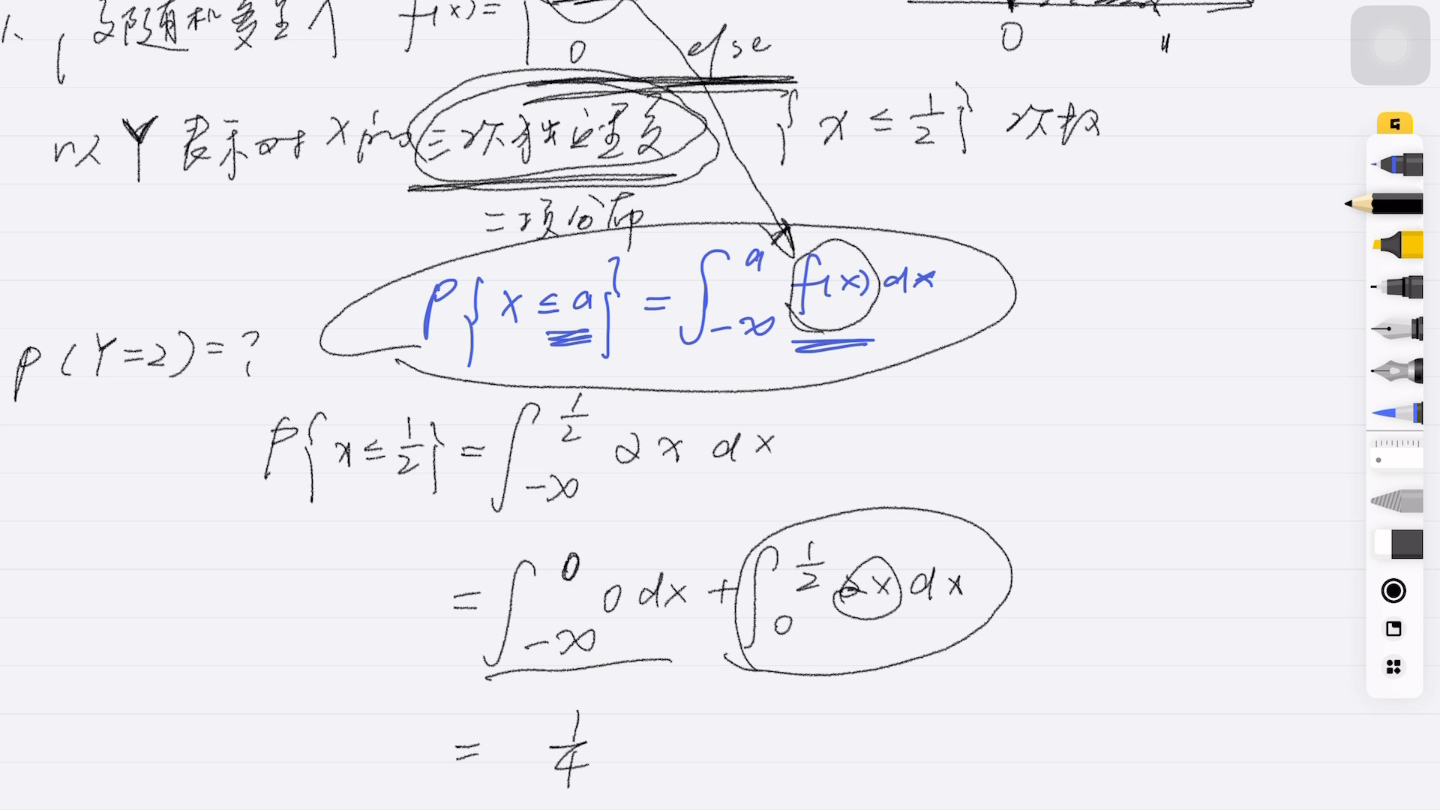 1. 设随机变量 f(x)=
0
else
0 1
以 Y 表示对 X 的三次独立重复 {x ≤ 1/2} 次数
二项分布
P{x ≤ a} = ∫_{-∞}^{a} f(x) dx
P(Y=2)=?
P{x ≤ 1/2} = ∫_{-∞}^{1/2} 2x dx
= ∫_{-∞}^{0} 0 dx + ∫_{0}^{1/2} 2x dx
= 1/4